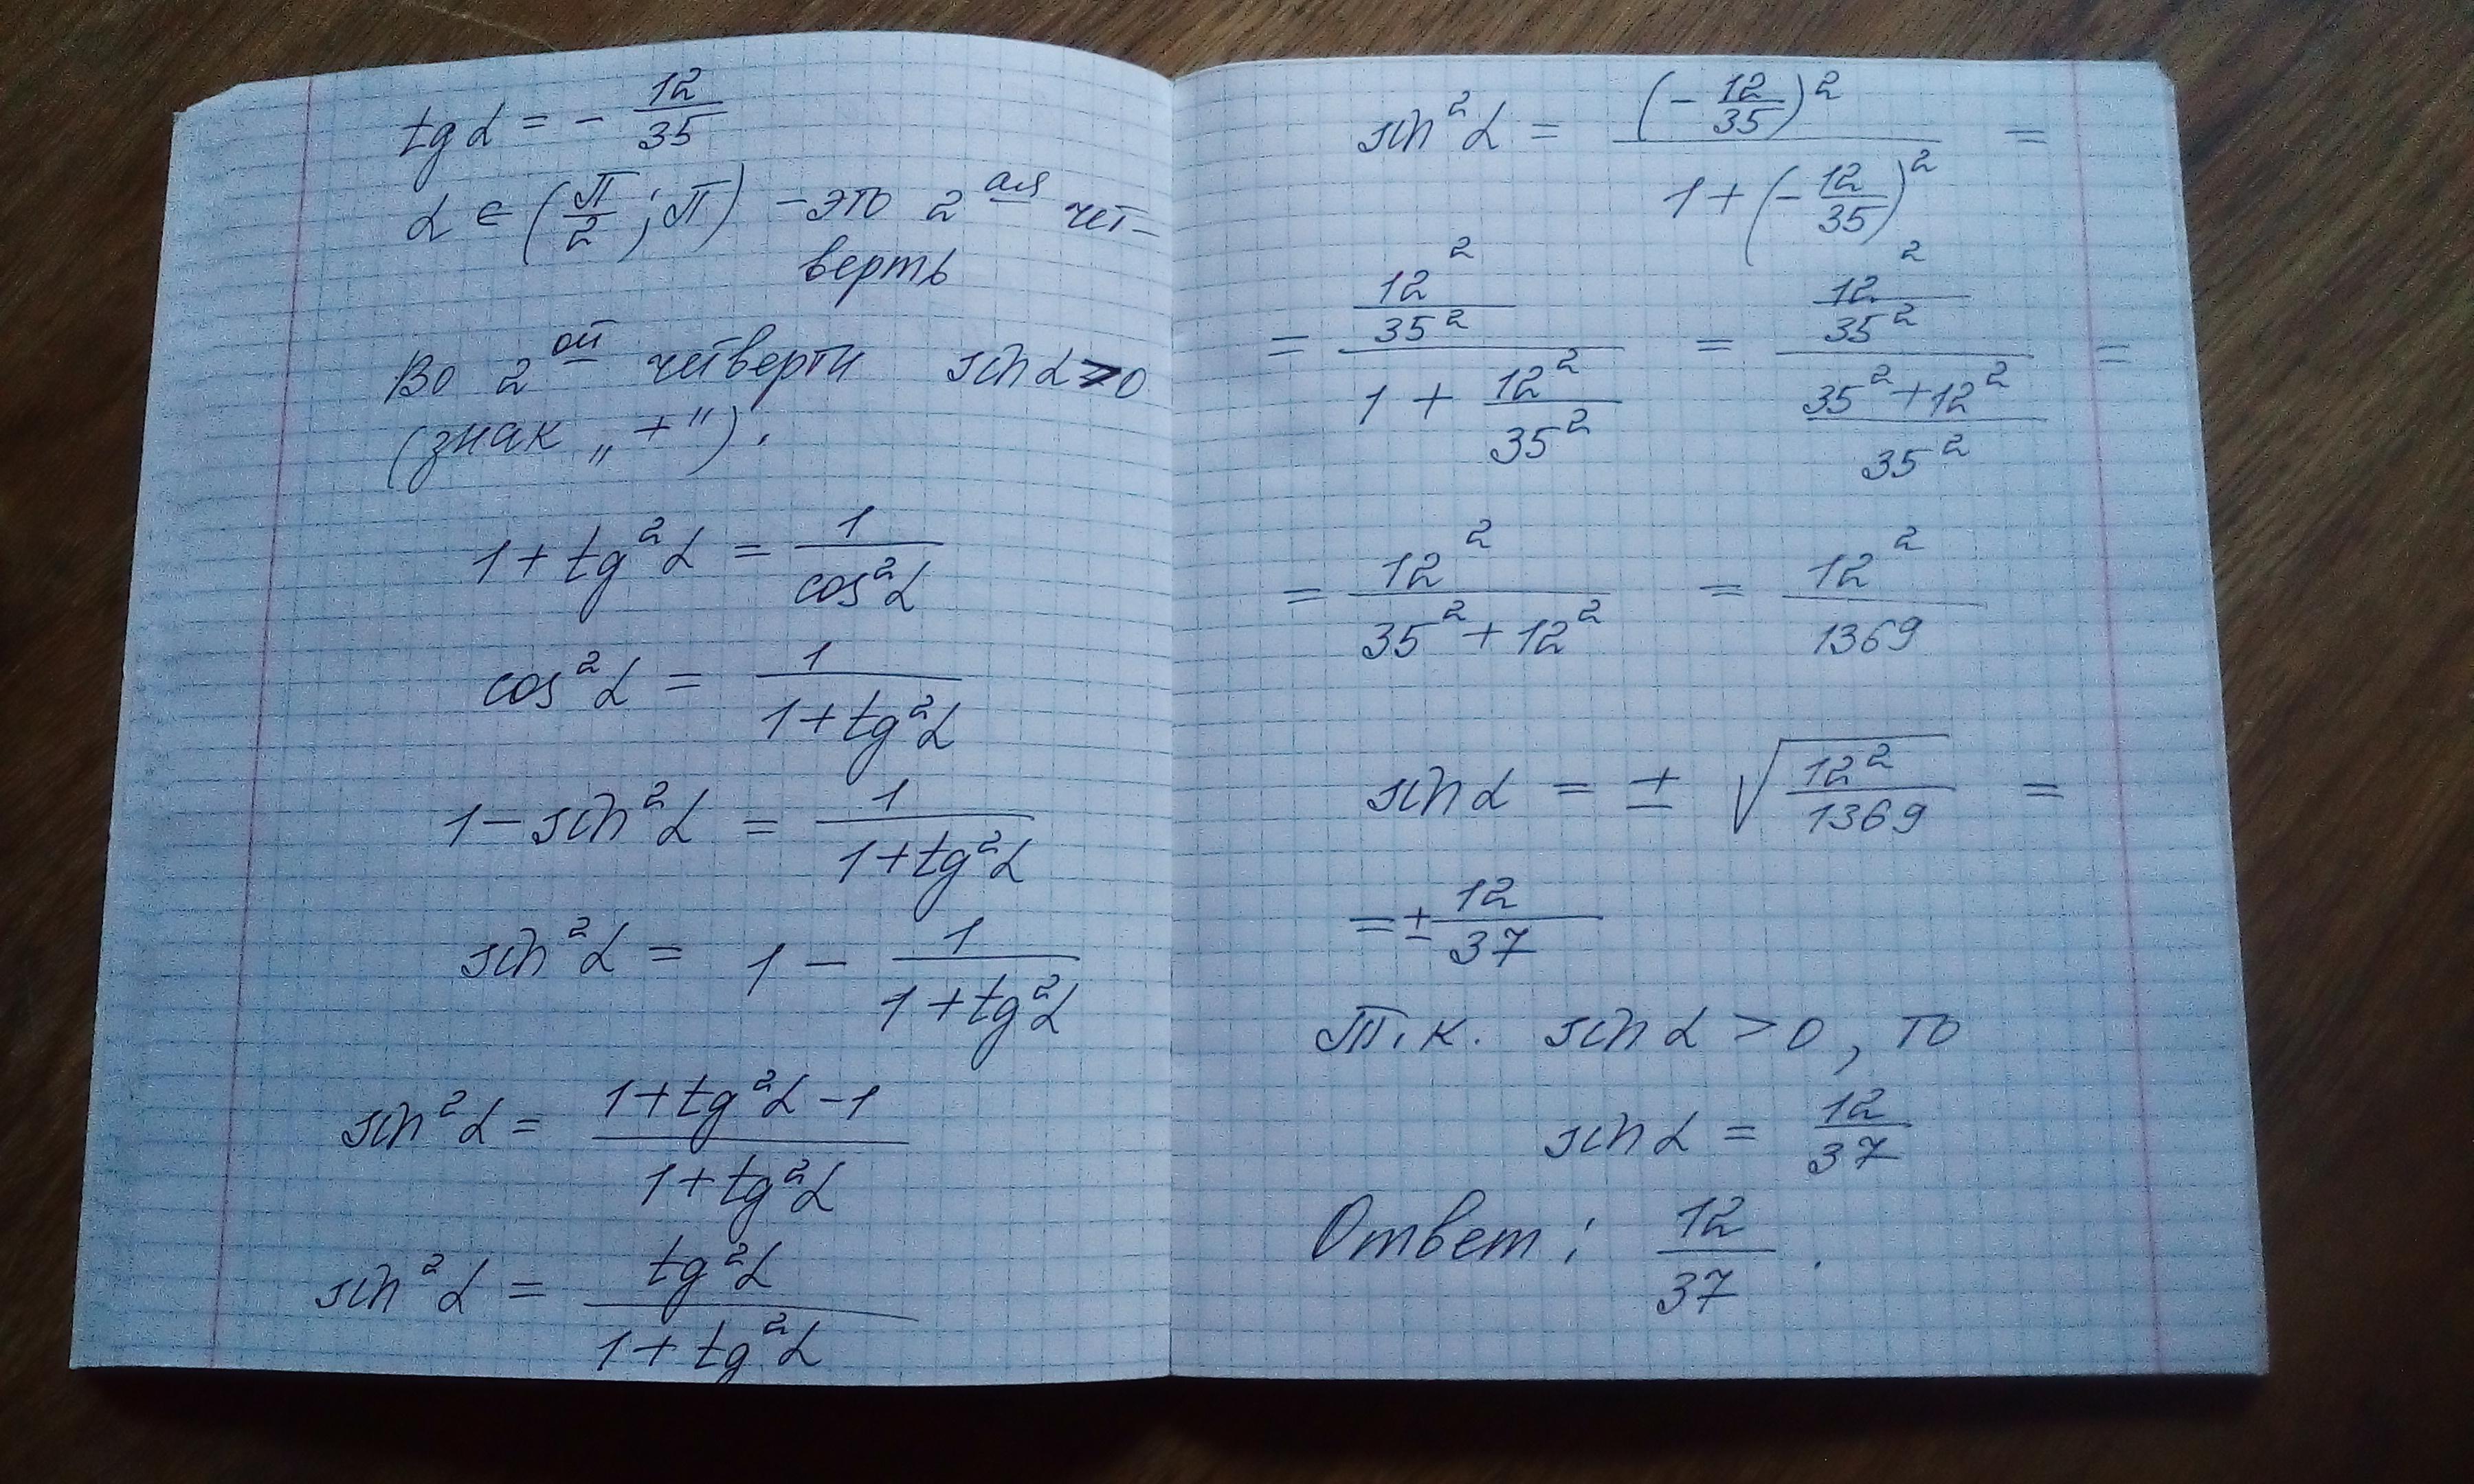 tg α = - 12/35
α ∈ (π/2 ; π) - это 2 ая чет-
верть
Во 2 ой четверти sin α > 0
(знак „+").
1 + tg²α = 1/cos²α
cos²α = 1/(1 + tg²α)
1 - sin²α = 1/(1 + tg²α)
sin²α = 1 - 1/(1 + tg²α)
sin²α = (1 + tg²α - 1)/(1 + tg²α)
sin²α = tg²α/(1 + tg²α)
sin²α = (- 12/35)²/(1 + (- 12/35)²) =
= (12²/35²)/(1 + 12²/35²) = (12²/35²)/((35² + 12²)/35²) =
= 12²/(35² + 12²) = 12²/1369
sin α = ± √(12²/1369) =
= ± 12/37
Т.к. sin α > 0, то
sin α = 12/37
Ответ: 12/37.